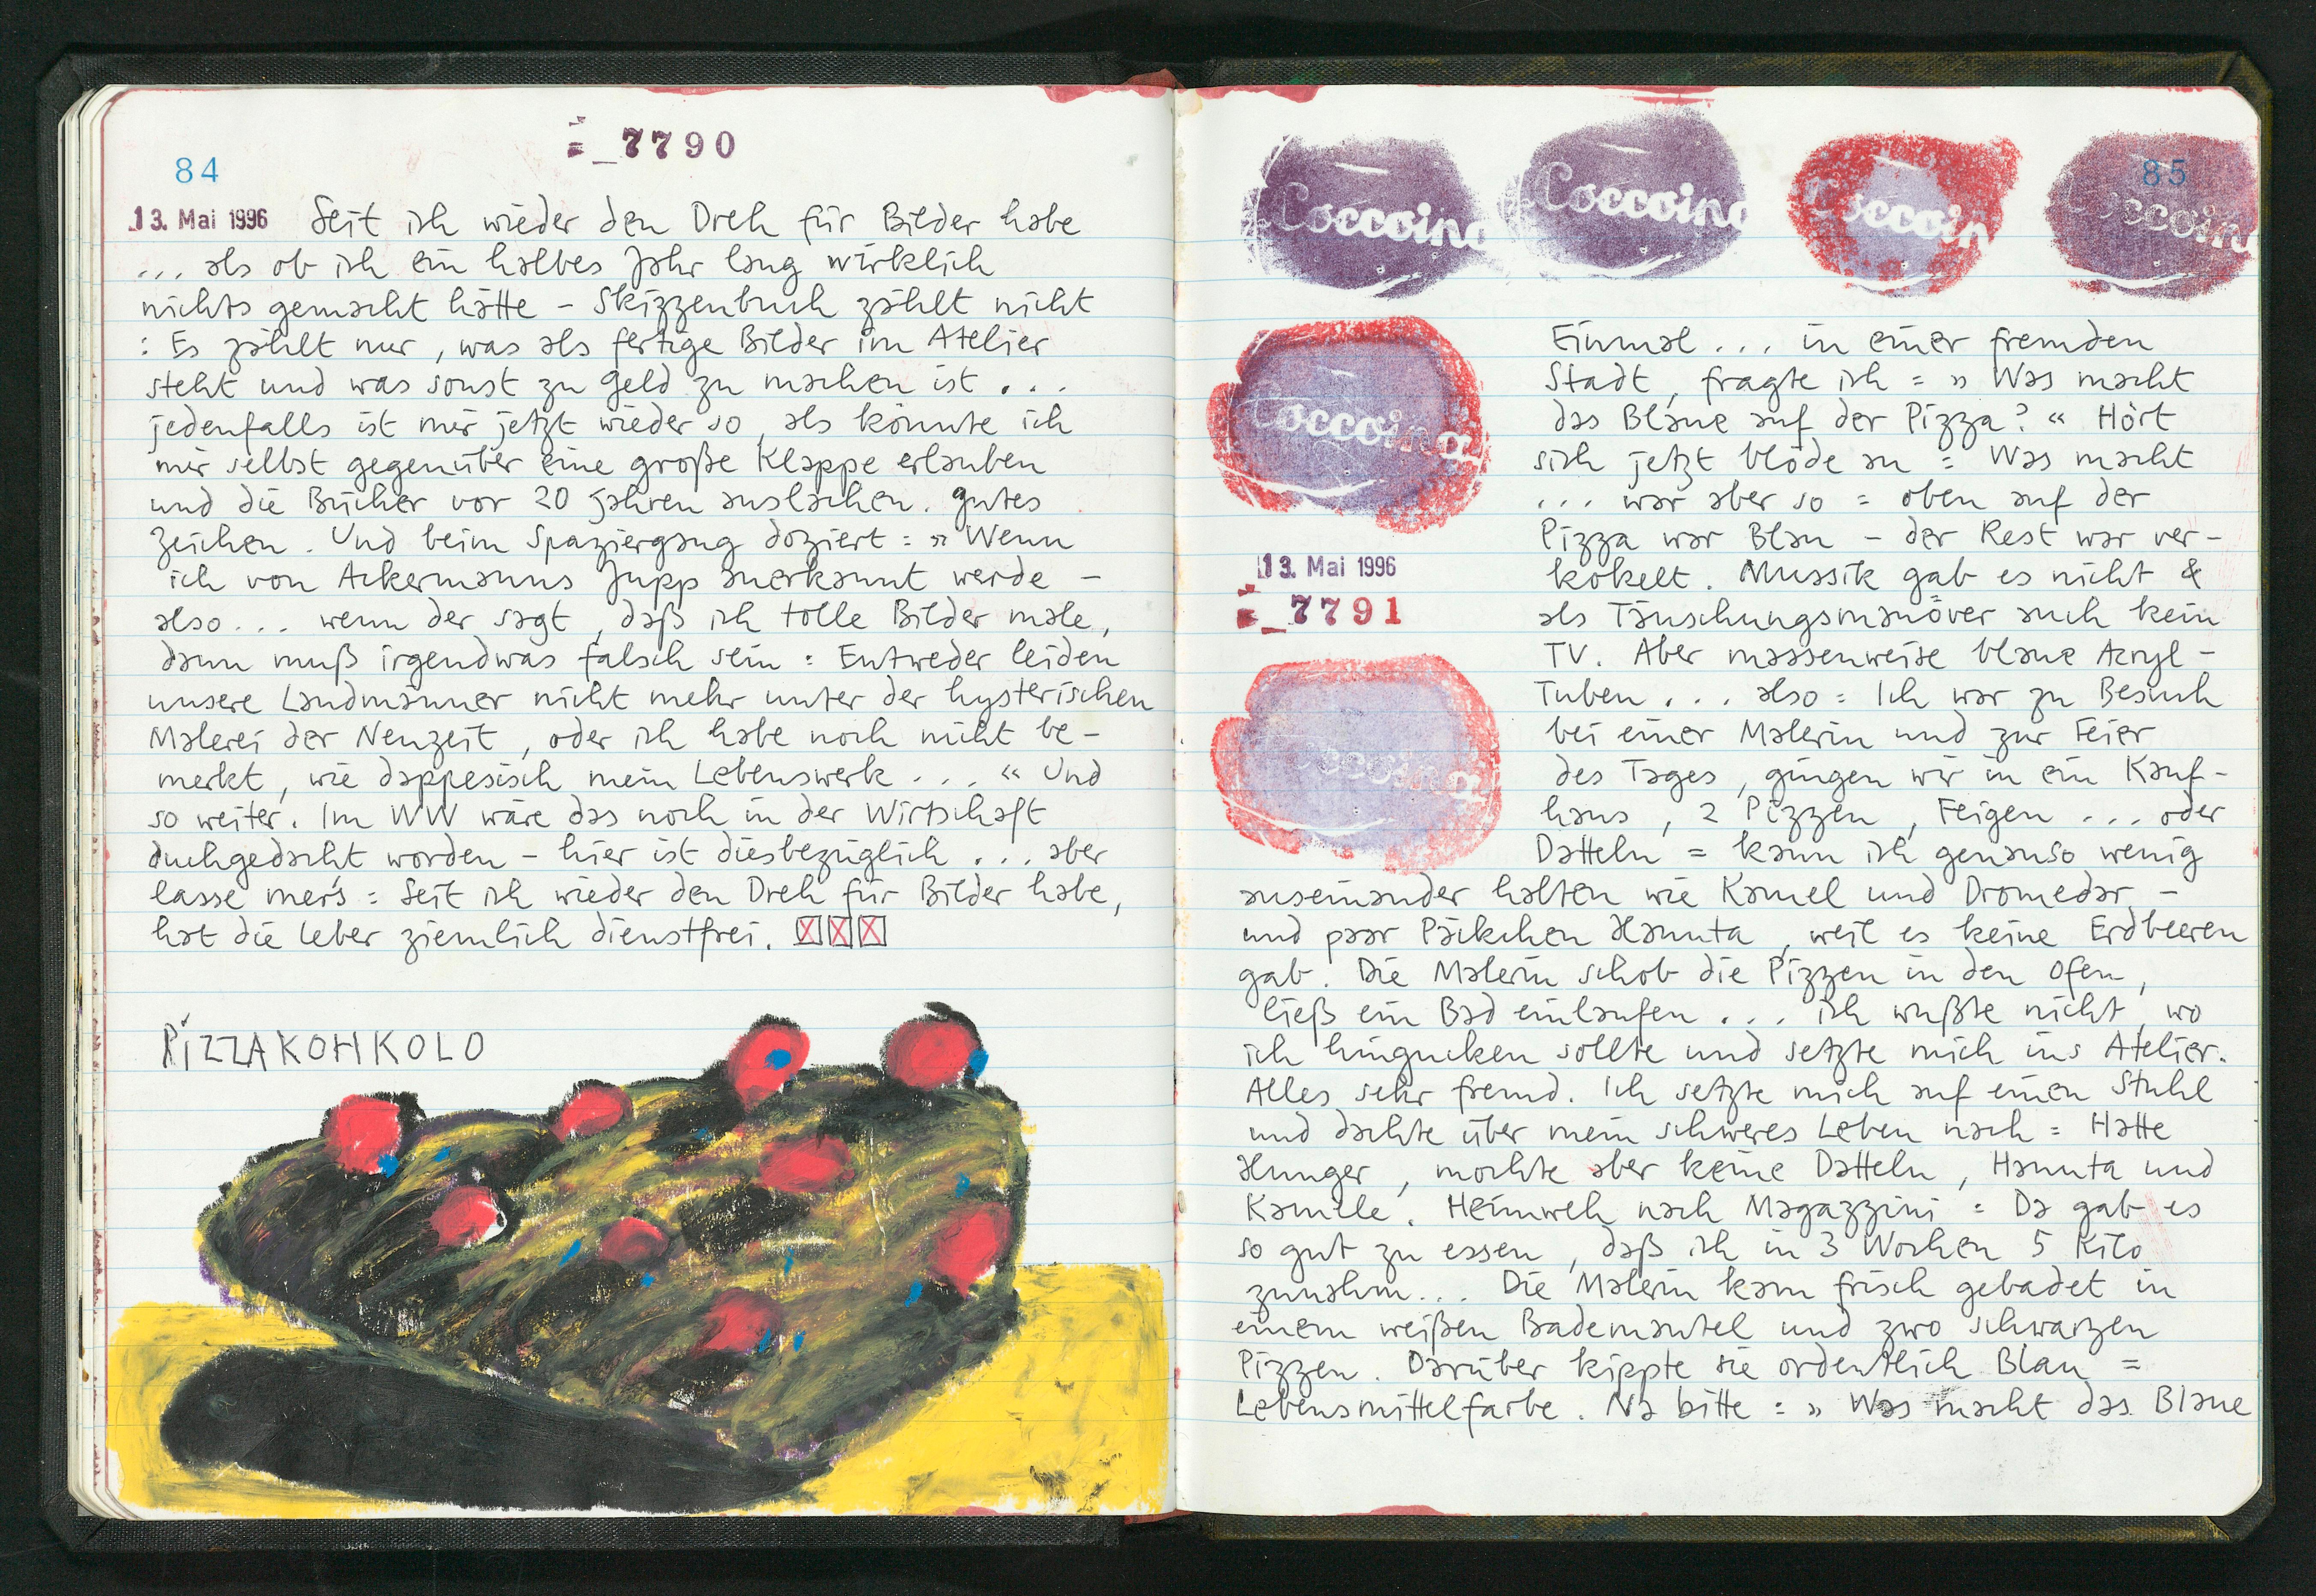 84
=_7790
13. Mai 1996 Seit ich wieder den Dreh für Bilder habe
... als ob ich ein halbes Jahr lang wirklich
nichts gemacht hätte – Skizzenbuch zählt nicht
: Es zählt nur, was als fertige Bilder im Atelier
steht und was sonst zu Geld zu machen ist ...
jedenfalls ist mir jetzt wieder so, als könnte ich
mir selbst gegenüber eine große Klappe erlauben
und die Bücher vor 20 Jahren auslachen. Gutes
Zeichen. Und beim Spaziergang doziert: » Wenn
ich von Ackermanns Jupp anerkannt werde –
also... wenn der sagt, daß ich tolle Bilder male,
dann muß irgendwas falsch sein: Entweder leiden
unsere Landmänner nicht mehr unter der hysterischen
Malerei der Neuzeit, oder ich habe noch nicht be-
merkt, wie dappesisch mein Lebenswerk ... « Und
so weiter. Im WW wäre das noch in der Wirtschaft
duchgedacht worden – hier ist diesbezüglich ... aber
lasse mer's: Seit ich wieder den Dreh für Bilder habe,
hat die Leber ziemlich dienstfrei.
PIZZAKOHKOLO
85
Coccoina
Coccoina
Coccoin
Coccoina
Coccoina
13. Mai 1996
=_7791
Coccoina
Einmal ... in einer fremden
Stadt, fragte ich = » Was macht
das Blaue auf der Pizza? « Hört
sich jetzt blöde an = Was macht
... war aber so = oben auf der
Pizza war Blau – der Rest war ver-
kokelt. Mussik gab es nicht &
als Täuschungsmanöver auch kein
TV. Aber massenweise blaue Acryl-
Tuben ... also = Ich war zu Besuch
bei einer Malerin und zur Feier
des Tages, gingen wir in ein Kauf-
haus, 2 Pizzen, Feigen ... oder
Datteln = kann ich genauso wenig
auseinander halten wie Kamel und Dromedar –
und paar Päckchen Hanuta, weil es keine Erdbeeren
gab. Die Malerin schob die Pizzen in den Ofen,
ließ ein Bad einlaufen ... ich wußte nicht, wo
ich hingucken sollte und setzte mich ins Atelier.
Alles sehr fremd. Ich setzte mich auf einen Stuhl
und dachte über mein schweres Leben nach = Hatte
Hunger, mochte aber keine Datteln, Hanuta und
Kamele. Heimweh nach Magazzini = Da gab es
so gut zu essen, daß ich in 3 Wochen 5 Kilo
zunahm... Die Malerin kam frisch gebadet in
einem weißen Bademantel und zwo schwarzen
Pizzen. Darüber kippte sie ordentlich Blau =
Lebensmittelfarbe. Na bitte = » Was macht das Blaue